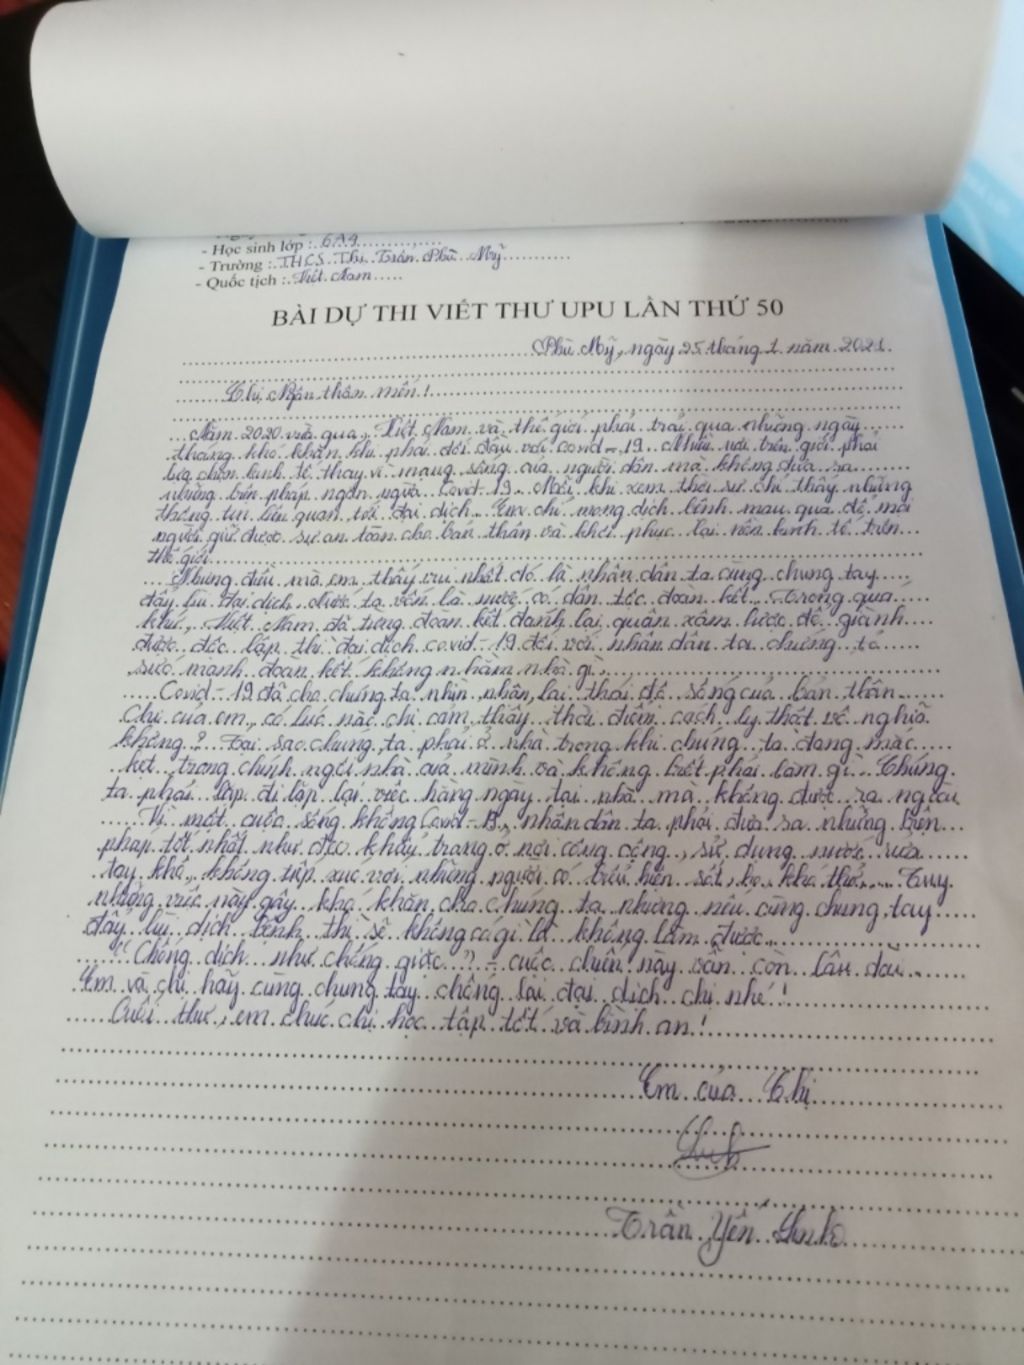 - Học sinh lớp : 6A4
- Trường : THCS Thị Trấn Phù Mỹ
- Quốc tịch : Việt Nam
BÀI DỰ THI VIẾT THƯ UPU LẦN THỨ 50
Phù Mỹ, ngày 25 tháng 1 năm 2021.
Chị Ngân thân mến!
Năm 2020 vừa qua, Việt Nam và thế giới phải trải qua những ngày
tháng khó khăn khi phải đối đầu với covid-19. Nhiều nơi trên giới phải
lựa chọn kinh tế thay vì mạng sống của người dân mà không đưa ra
những biện pháp ngăn ngừa Covid-19. Mỗi khi xem thời sự chỉ thấy những
thông tin liên quan tới đại dịch. Em chỉ mong dịch bệnh mau qua để mọi
người giữ được sự an toàn cho bản thân và khôi phục lại nền kinh tế trên
thế giới.
Nhưng điều mà em thấy vui nhất đó là nhân dân ta cùng chung tay
đẩy lùi đại dịch. Nước ta vốn là nước có dân tộc đoàn kết. Trong quá
khứ, Việt Nam đã từng đoàn kết đánh lại quân xâm lược để giành
được độc lập thì đại dịch covid-19 đối với nhân dân ta chứng tỏ
sức mạnh đoàn kết không nhằm nhò gì.
Covid-19 đã cho chúng ta nhìn nhận lại thái độ sống của bản thân.
Chị của em, có lúc nào chị cảm thấy thời điểm cách ly thật vô nghĩa
không? Tại sao chúng ta phải ở nhà trong khi chúng ta đang mắc
kẹt trong chính ngôi nhà của mình và không biết phải làm gì. Chúng
ta phải lặp đi lặp lại việc hằng ngày tại nhà mà không được ra ngoài
Vì một cuộc sống không Covid-19, nhân dân ta phải đưa ra những biện
pháp tốt nhất như đeo khẩu trang ở nơi công cộng, sử dụng nước rửa
tay khô, không tiếp xúc với những người có biểu hiện sốt, ho, khó thở,... Tuy
những việc này gây khó khăn cho chúng ta nhưng nếu cùng chung tay
đẩy lùi dịch bệnh thì sẽ không có gì là không làm được.
"Chống dịch như chống giặc" - cuộc chiến này vẫn còn lâu dài.
Em và chị hãy cùng chung tay chống lại đại dịch chị nhé!
Cuối thư, em chúc chị học tập tốt và bình an!
Em của Chị
Trần Yến Linh